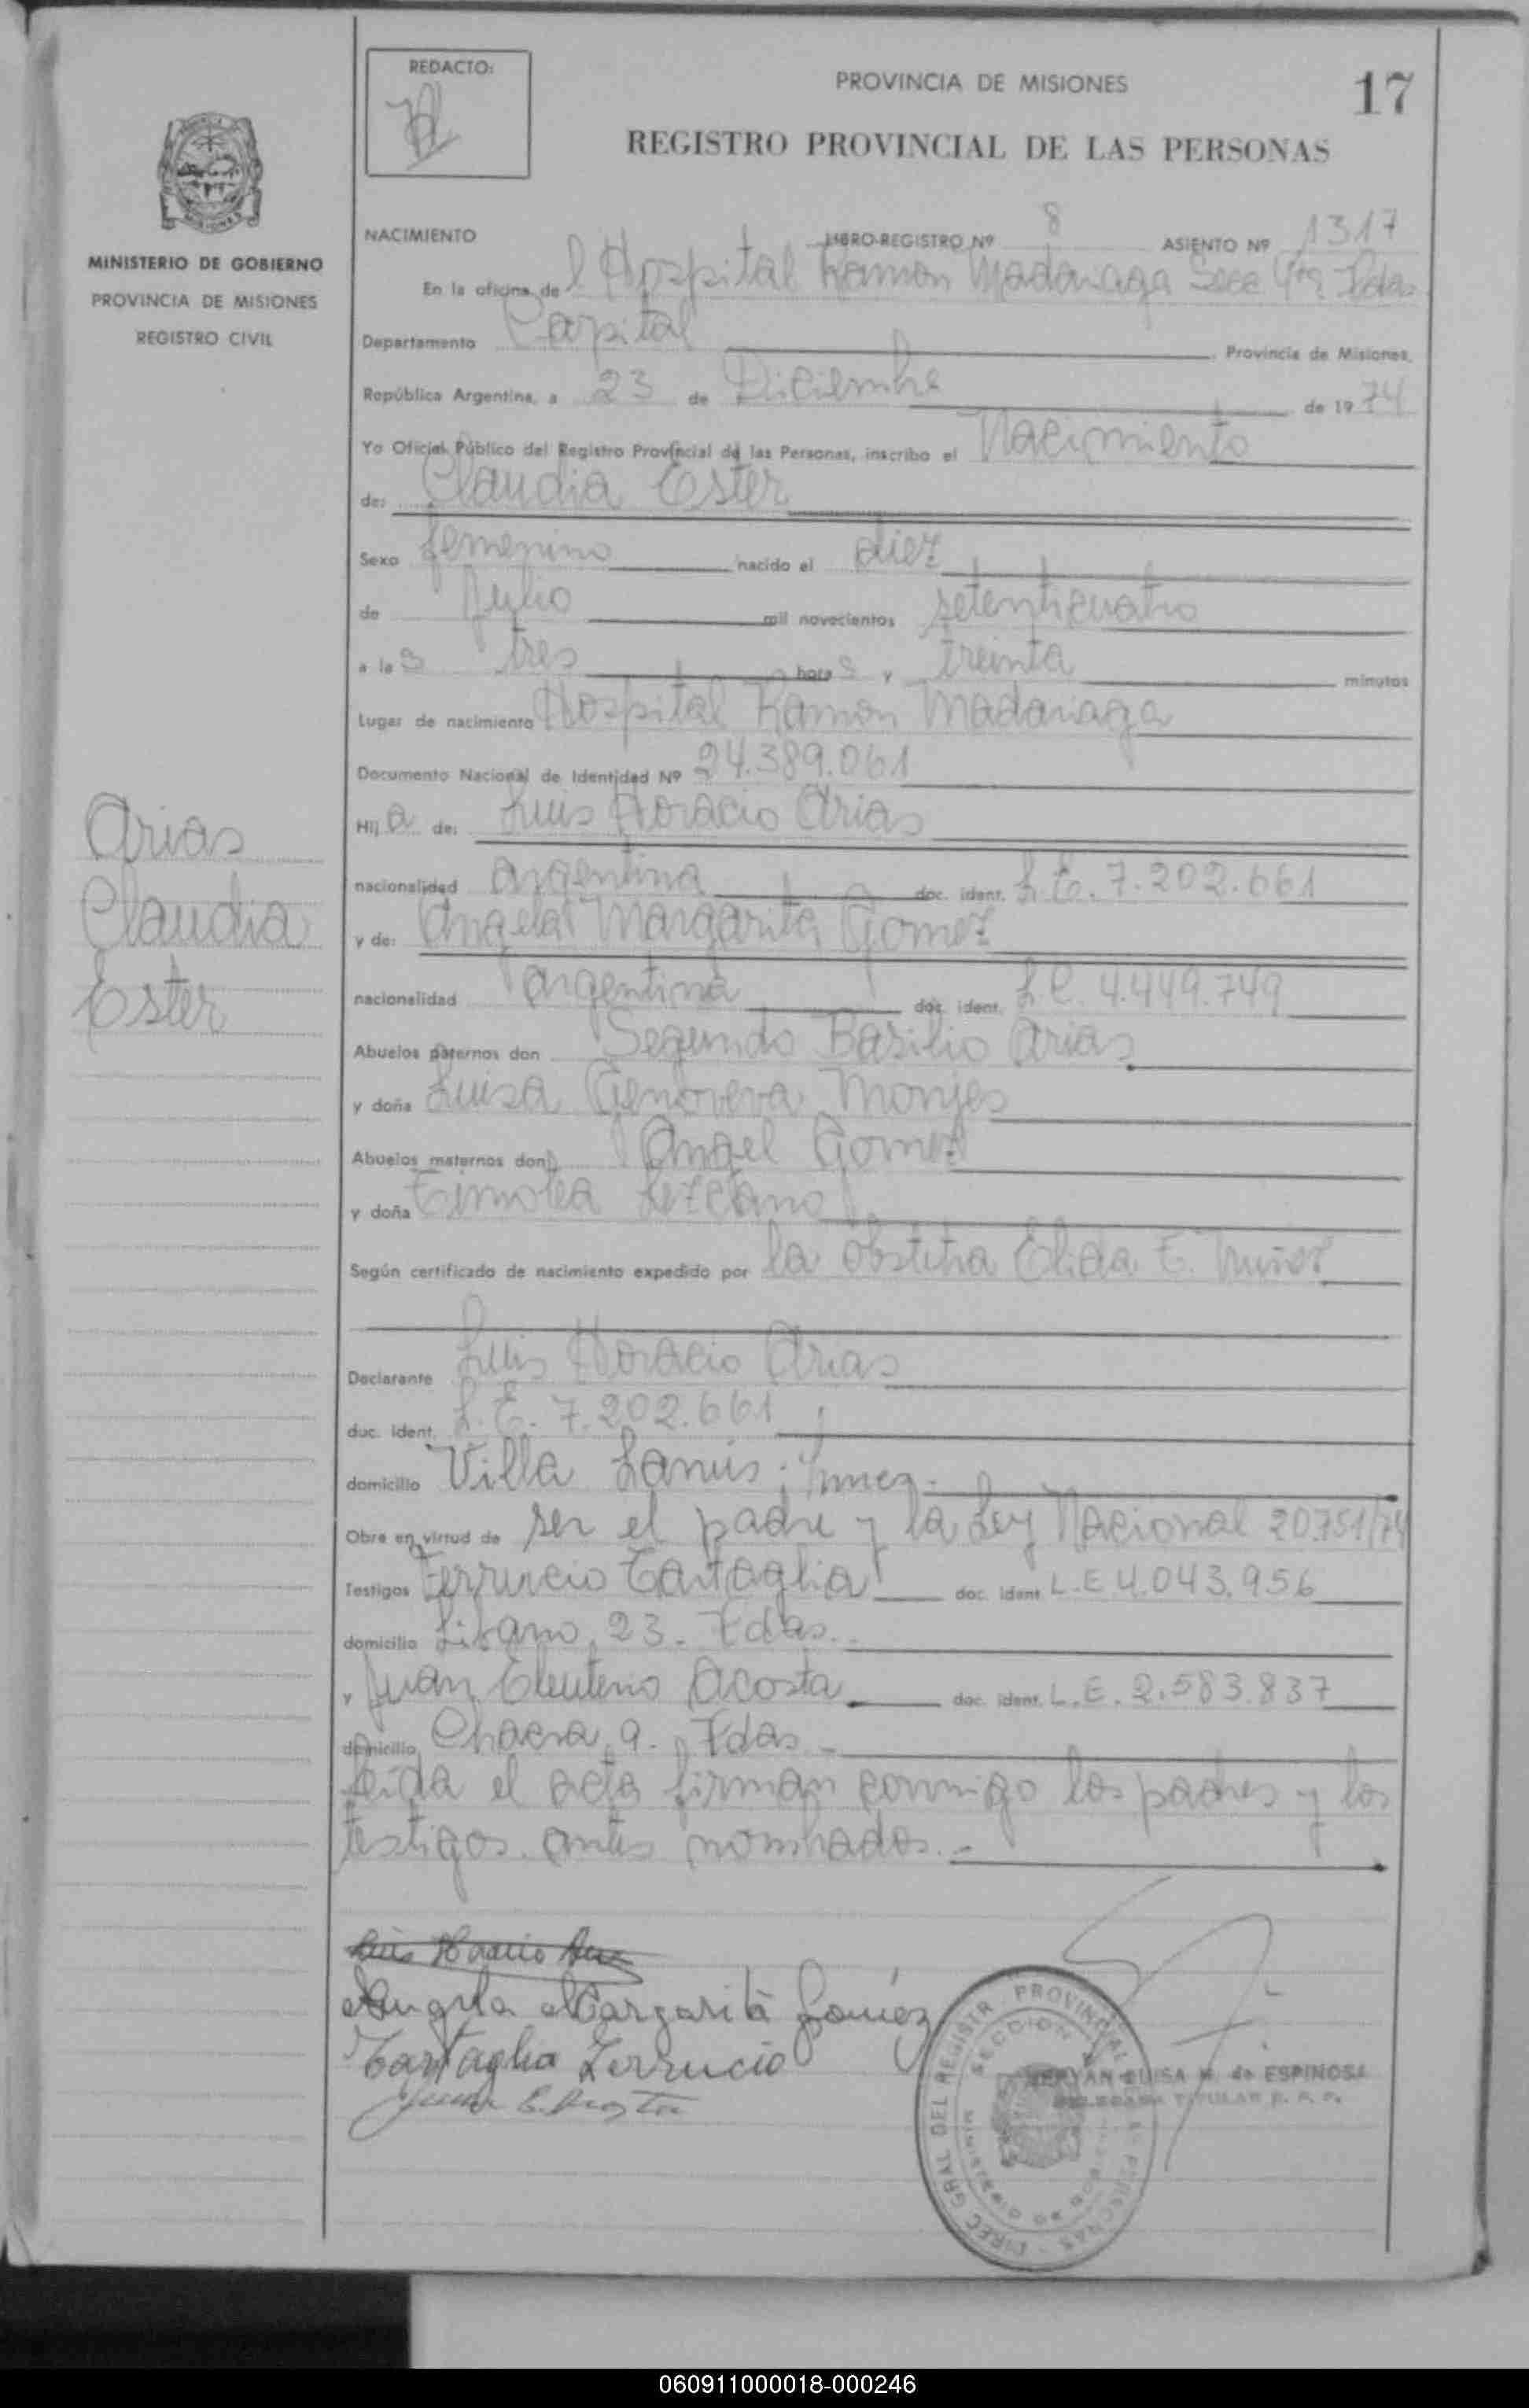 REDACTO:
PROVINCIA DE MISIONES
17
REGISTRO PROVINCIAL DE LAS PERSONAS
MINISTERIO DE GOBIERNO
PROVINCIA DE MISIONES
REGISTRO CIVIL
NACIMIENTO LIBRO-REGISTRO Nº 8 ASIENTO Nº 1317
En la oficina de l Hospital Ramon Madariaga Secc 4ta Pdas
Departamento Capital Provincia de Misiones,
República Argentina, a 23 de Diciembre de 1974
Yo Oficial Público del Registro Provincial de las Personas, inscribo el Nacimiento
de: Claudia Ester
Sexo femenino nacido el diez
de Julio mil novecientos setenticuatro
a las tres horas y treinta minutos
Lugar de nacimiento Hospital Ramon Madariaga
Documento Nacional de Identidad Nº 24.389.061
Arias
Claudia
Ester
Hija de: Luis Horacio Arias
nacionalidad argentina doc. ident. L.E. 7.202.661
y de: Angela Margarita Gomez
nacionalidad argentina doc. ident. L.C. 4.449.749
Abuelos paternos don Segundo Basilio Arias
y doña Luisa Genoveva Monjes
Abuelos maternos don Angel Gomez
y doña Timotea Lezcano
Según certificado de nacimiento expedido por la obstetra Elida E. Muñoz
Declarante Luis Horacio Arias
duc. ident. L.E. 7.202.661
domicilio Villa Lanús
Obra en virtud de ser el padre y la Ley Nacional 20.751/74
Testigos Ferruccio Tartaglia doc. ident L.E 4.043.956
domicilio Libano 23. Pdas.-
y Juan Eleuterio Acosta doc. ident. L.E. 2.583.837
domicilio Chacra 9. Pdas -
Leída el acta firman conmigo los padres y los
testigos antes nombrados.-
Luis Horacio Arias
Angela Margarita Gomez
Tartaglia Ferrucio
Juan E. Acosta
DIREC GRAL DEL REGISTR. PROVINCIAL DE PERSONAS
SECCION
MINISTERIO DE GOBIERNO
ELUISA M. de ESPINOSA
DELEGADA TITULAR R. P. P.
060911000018-000246